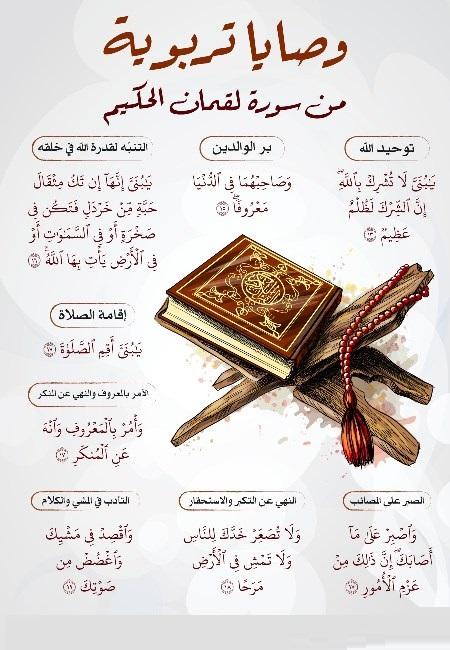 وصايا تربوية
من سورة لقمان الحكيم
توحيد الله
يَٰبُنَىَّ لَا تُشْرِكْ بِٱللَّهِۖ
إِنَّ ٱلشِّرْكَ لَظُلْمٌ
عَظِيمٌ ١٣
بر الوالدين
وَصَاحِبْهُمَا فِى ٱلدُّنْيَا
مَعْرُوفًاۖ ١٥
التنبّه لقدرة الله في خلقه
يَٰبُنَىَّ إِنَّهَآ إِن تَكُ مِثْقَالَ
حَبَّةٍ مِّنْ خَرْدَلٍ فَتَكُن فِى
صَخْرَةٍ أَوْ فِى ٱلسَّمَٰوَٰتِ أَوْ
فِى ٱلْأَرْضِ يَأْتِ بِهَا ٱللَّهُۚ ١٦
إقامة الصلاة
يَٰبُنَىَّ أَقِمِ ٱلصَّلَوٰةَ ١٧
الأمر بالمعروف والنهي عن المنكر
وَأْمُرْ بِٱلْمَعْرُوفِ وَٱنْهَ
عَنِ ٱلْمُنكَرِ ١٧
الصبر على المصائب
وَٱصْبِرْ عَلَىٰ مَآ
أَصَابَكَۖ إِنَّ ذَٰلِكَ مِنْ
عَزْمِ ٱلْأُمُورِ ١٧
النهي عن التكبر والاستحقار
وَلَا تُصَعِّرْ خَدَّكَ لِلنَّاسِ
وَلَا تَمْشِ فِى ٱلْأَرْضِ
مَرَحًا ١٨
التأدب في المشي والكلام
وَٱقْصِدْ فِى مَشْيِكَ
وَٱغْضُضْ مِن
صَوْتِكَ ١٩